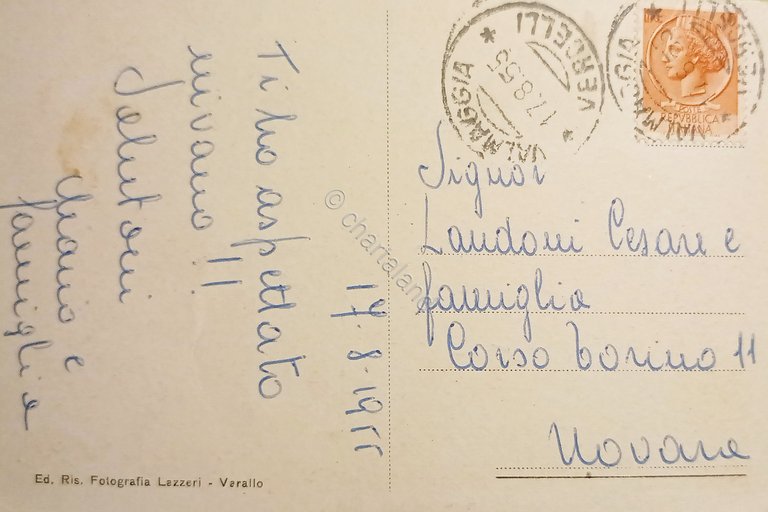 Ti ho aspettato
invano!!
Saluti
e
famiglia
17-8-1955
Signor
Landoni Cesare e
famiglia
Corso Torino 11
Novara
VALMAGGIA * VERCELLI *
17.8.55
REPUBBLICA
ITALIANA
Ed. Ris. Fotografia Lazzeri - Varallo
© chartaland